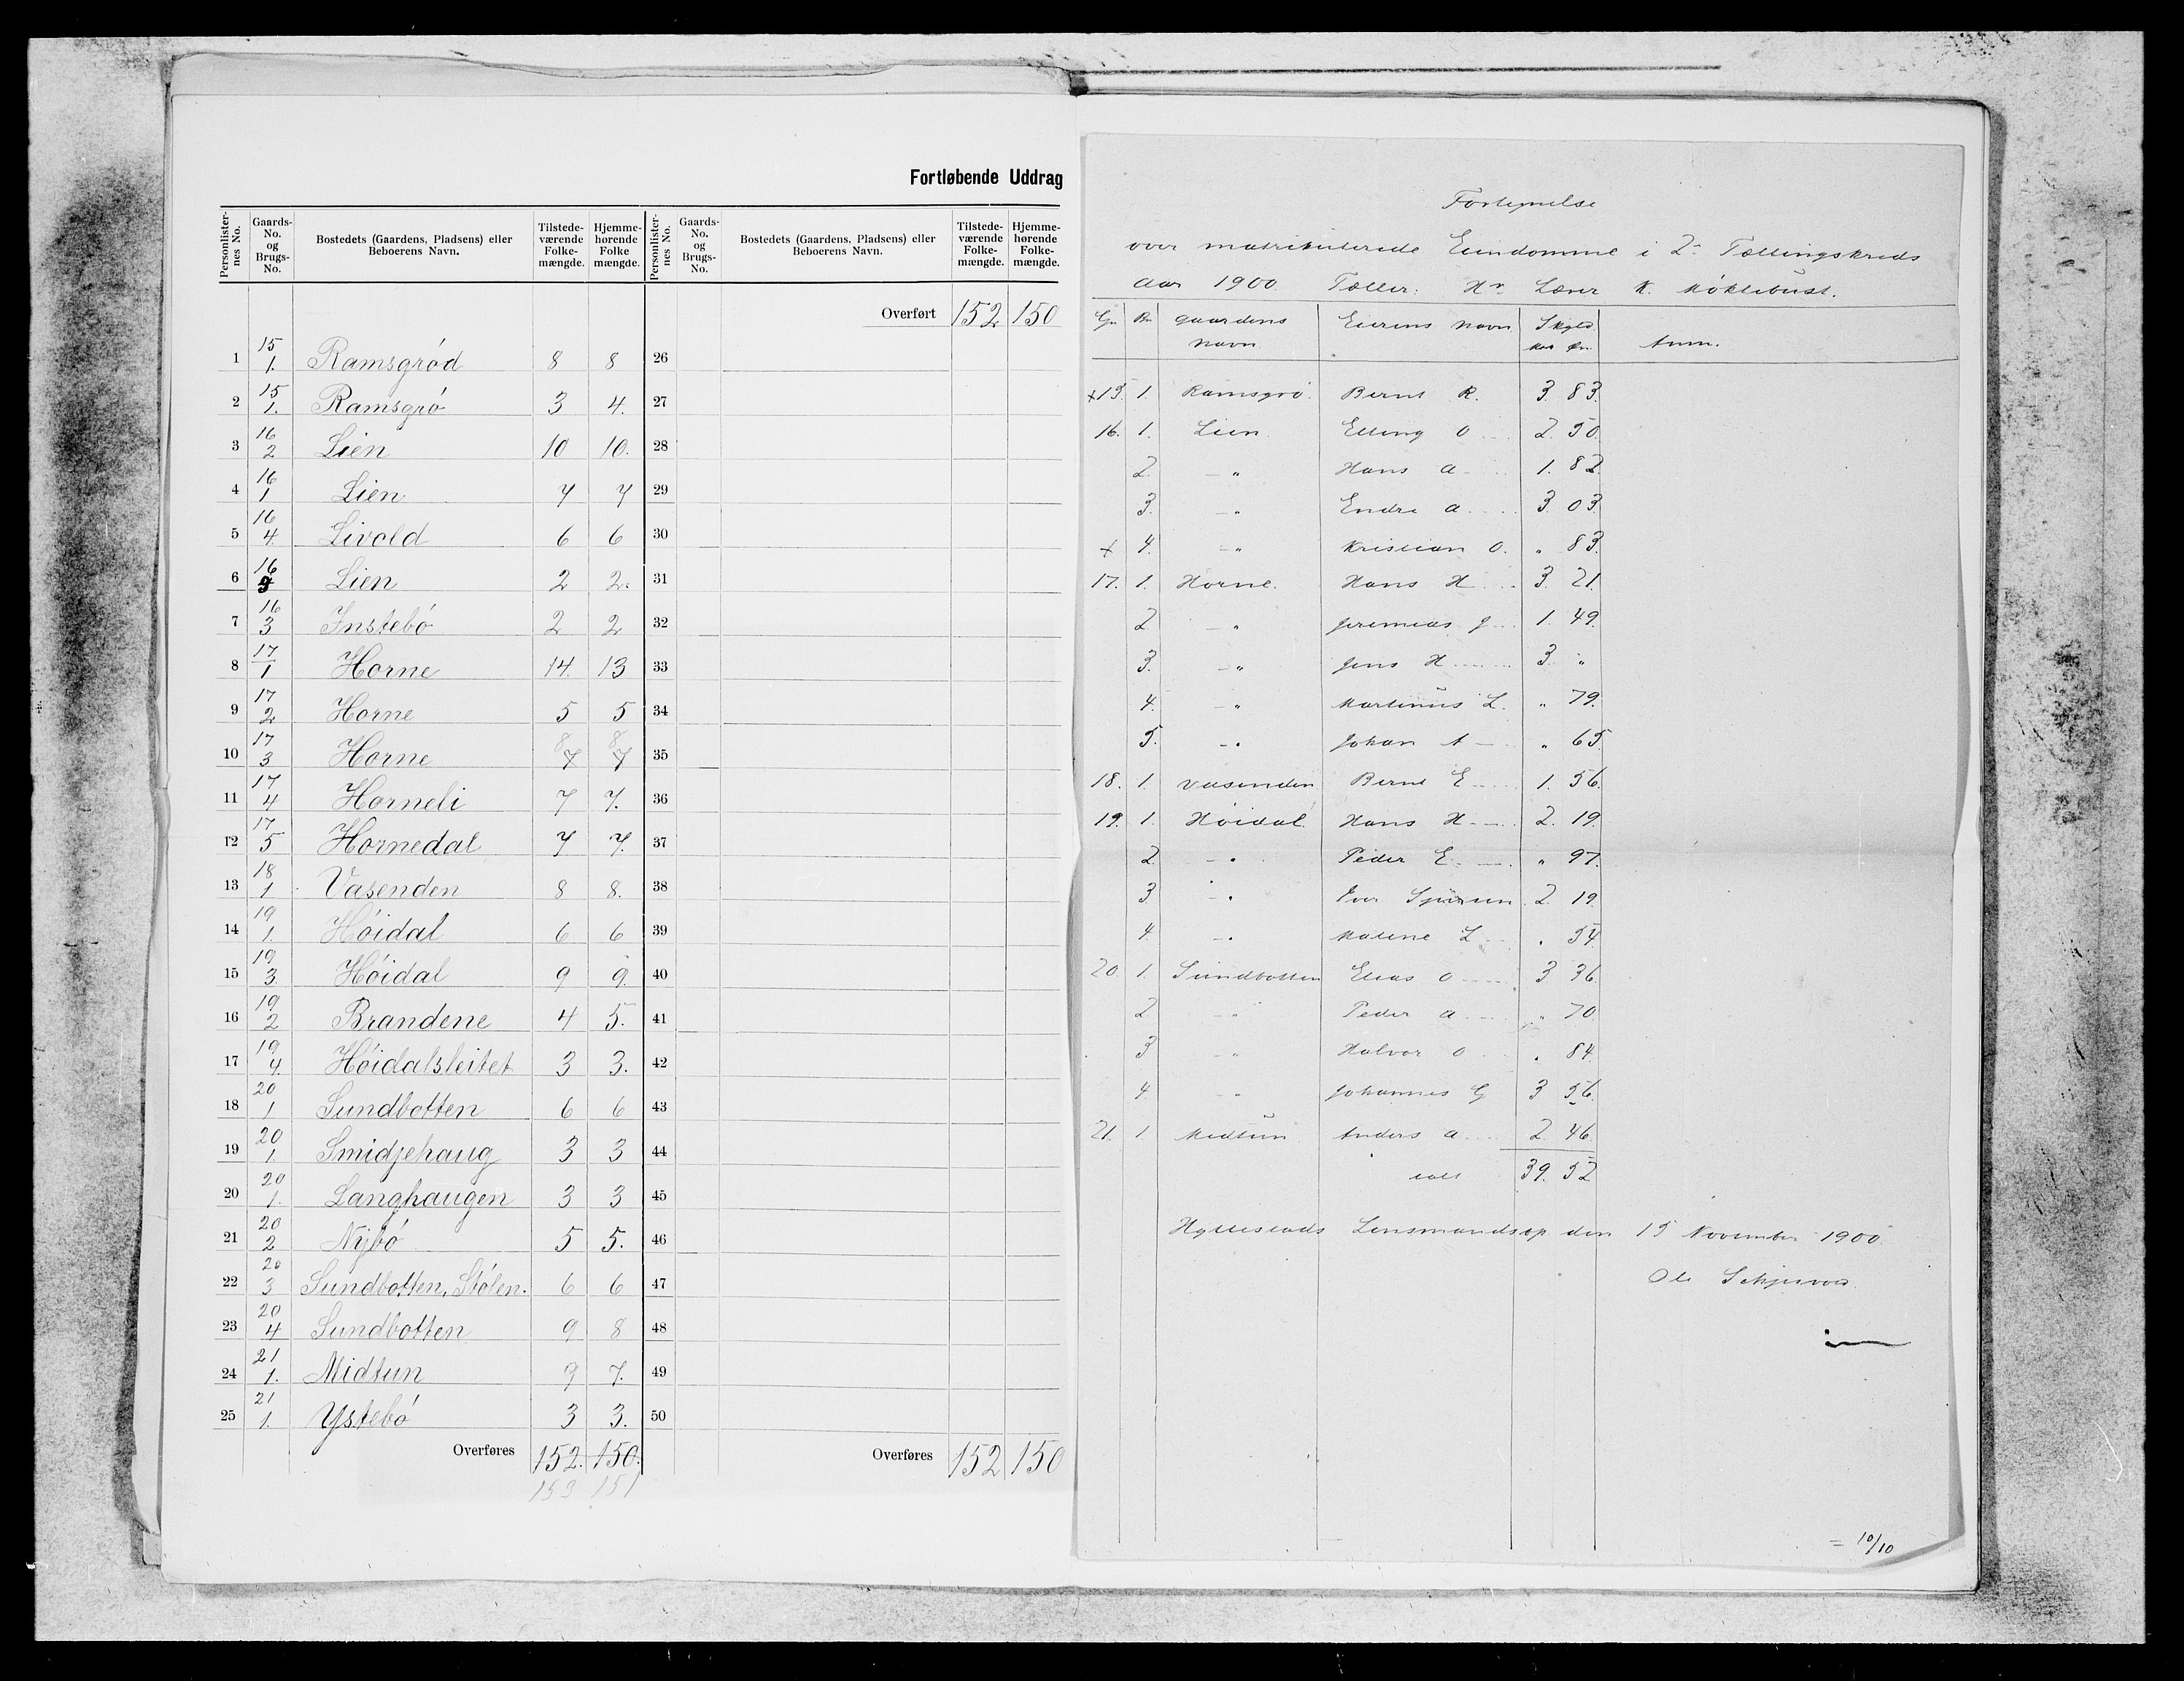 Fortløbende Uddrag
Personlister-nes No. | Gaards-No. og Brugs-No. | Bostedets (Gaardens, Pladsens) eller Beboerens Navn. | Tilstede-værende Folke-mængde. | Hjemme-hørende Folke mængde. | Personlister-nes No. | Gaards-No. og Brugs-No. | Bostedets (Gaardens, Pladsens) eller Beboerens Navn. | Tilstede-værende Folke-mængde. | Hjemme-hørende Folke-mængde.
Overført 152 150
1 15/1. Ramsgrød 8 8 26
2 15/1. Ramsgrö 3 4. 27
3 16/2 Lien 10 10. 28
4 16/1 Lien 7 7 29
5 16/4. Livold 6 6 30
6 16/ Lien 2 2. 31
7 16/3 Instebö 2 2 32
8 17/1 Horne 14. 13 33
9 17/2 Horne 5 5 34
10 17/3 Horne 8 7 8 7 35
11 17/4 Horneli 7 7. 36
12 17/5 Hornedal 7 7. 37
13 18/1 Vasenden 8 8. 38
14 19/1. Höidal 6 6 39
15 19/3. Höidal 9 9. 40
16 19/2 Brandene 4 5. 41
17 19/4. Höidalsleitet 3 3. 42
18 20/1 Sundbotten 6 6 43
19 20/1. Smidjehaug 3 3 44
20 20/1. Langhaugen 3 3 45
21 20/2 Nybö 5 5. 46
22 20/3 Sundbotten, Stölen. 6 6 47
23 20/4 Sundbotten 9 8 48
24 21/1. Midtun 9 7. 49
25 21/1. Ystebö 3 3. 50
Overføres 152. 150. Overføres 152 150
153 151
Fortegnelse
over matrikulerede Eiendomme i 2. Tællingskreds
Aar 1900. Tæller: Hr Lærer K. Möklebust.
Gn Bn Gaardens Navn Eierens Navn Skyld Mark Øre Anm.
x 15. 1. Ramsgrö. Bernt R. 3. 83.
16. 1. Lien Elling O 2. 50.
2. — " Hans A 1. 82.
3. — " Endre A 3. 03.
x 4. — " Kristian O. " 83.
17. 1. Horne. Hans H 3. 21.
2 — " Jeremias J. 1. 49.
3. — " Jens H 3. "
4. — " Martinus L. " 79.
5. — " Johan A " 65.
18. 1. Vasenden Bernt E 1. 56.
19. 1. Höidal. Hans H 2. 19.
2 — " Peder E. " 97.
3 — " Iver 2. 19.
4. — " Malene L " 54.
20. 1. Sundbotten Elias O 3 36
2 — " Peder A " 70
3 — " Halvor O " 84.
4. — " Johannes G 3 56.
21. 1. Midtun Anders A. 2. 46.
ialt 39. 52
Hyllestads Lensmandsop. den 15 November 1900
Ole
= 10/10